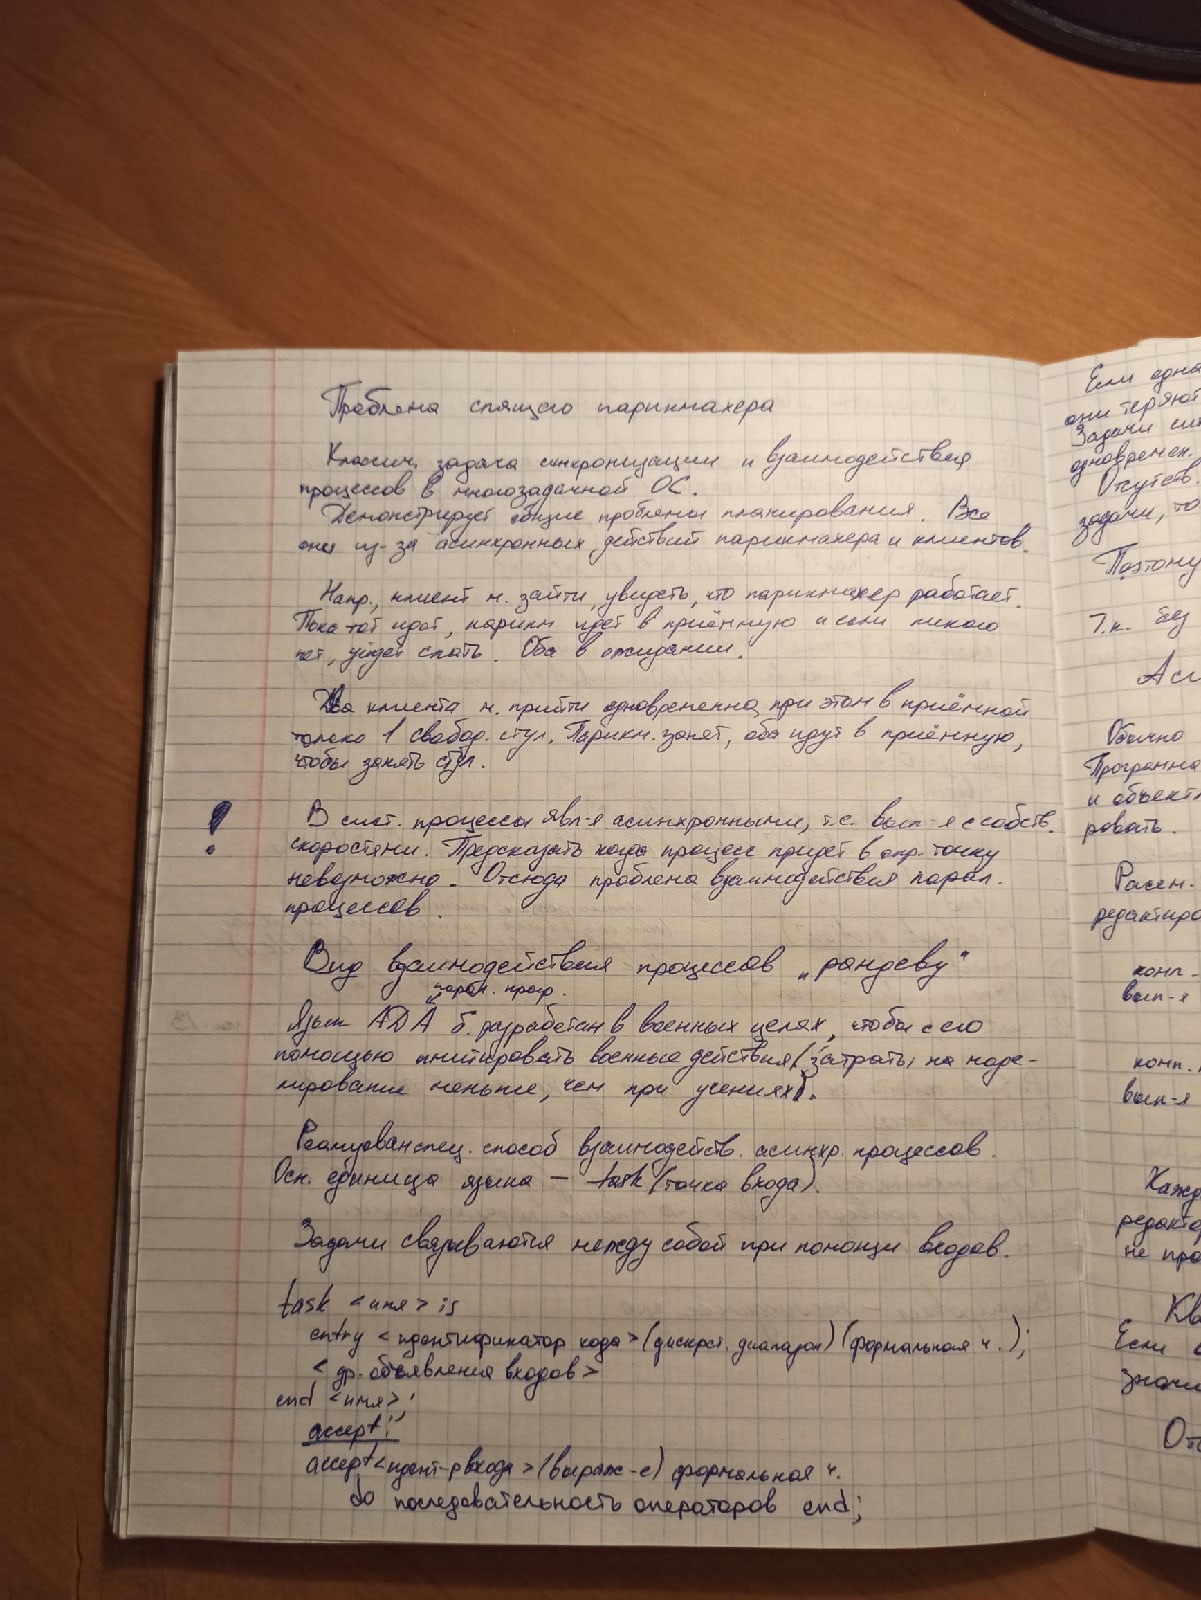 Проблема спящего парикмахера
Классич. задача синхронизации и взаимодействия
процессов в многозадачной ОС.
Демонстрирует общие проблемы планирования. Все
они из-за асинхронных действий парикмахера и клиентов.
Напр., клиент м. зайти увидеть, что парикмахер работает.
Пока тот идёт, парикм идёт в приёмную и если никого
нет, уйдёт спать. Оба в ожидании.
Два клиента м. прийти одновременно, при этом в приёмной
только 1 свобод. стул. Парикм. занят, оба идут в приёмную,
чтобы занять стул.
! В сист. процессы явл-я асинхронными, т.е. вып-я с собств.
скоростями. Предсказать когда процесс придёт в опр. точку
невозможно. Отсюда проблема взаимодействия парал.
процессов.
Вид взаимодействия процессов „рандеву"
парал. прогр.
Язык ADA б. разработан в военных целях, чтобы с его
помощью имитировать военные действия (затраты на моде-
лирование меньше, чем при учениях).
Реализован спец. способ взаимодейств. асинхр. процессов.
Осн. единица языка — task (точка входа).
Задачи связываются между собой при помощи входов.
task <имя> is
entry <идентификатор хода> (дискрет. диапазон) (формальная ч.);
<др. объявления входов>
end <имя>;
accept:
accept <идент-р входа> (выраж-е) формальная ч.
do последовательность операторов end;
Если одна
они теряют
Задачи
одновремен.
Отсутств.
задачи, то
Поэтому
Т.к. без
Обычно
Программа
и объект
ровать.
Рассм.
редактиро
комп-
вып-я
комп.
вып-я
Кажд
редактор
не про
Если
значи